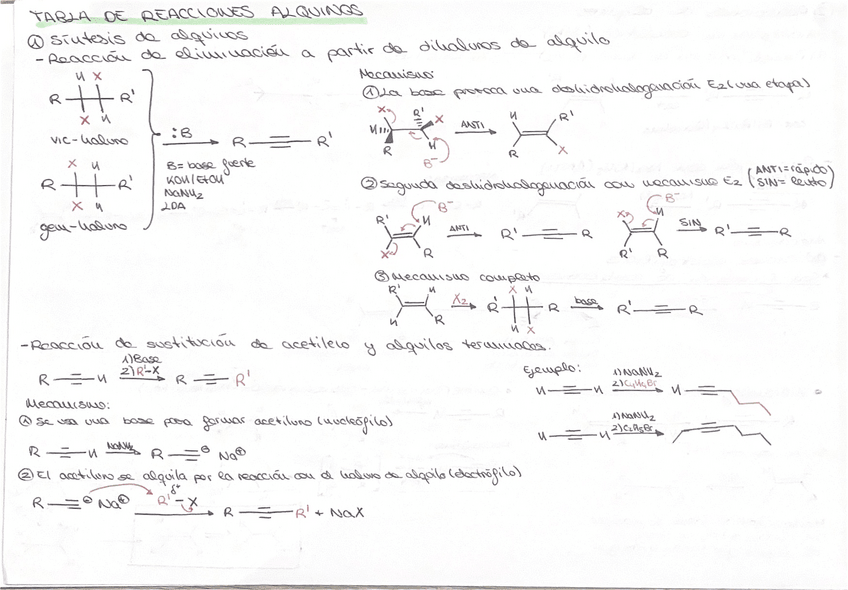 TABLA DE REACCIONES ALQUINOS
① Síntesis de alquinos
- Reacción de eliminación a partir de dihaluros de alquilo
H X
R R'
X H
vic-haluro
X H
R R'
X H
gem-haluro
:B
B= base fuerte
KOH/EtOH
NaNH2
LDA
R R'
Mecanismo:
① La base provoca una deshidrohalogenación E2 (una etapa)
X R' X
H R H
B⁻
ANTI
H R'
R X
② Segunda deshidrohalogenación con mecanismo E2 (ANTI=rápido
SIN= lento)
R' H B⁻
X R
ANTI
R' R
X H B⁻
R' R
SIN
R' R
③ Mecanismo completo
R' H
H R
X2
X H
R' R
H X
base
R' R
- Reacción de sustitución de acetileno y alquilos terminales.
R H
1) Base
2) R'-X
R R'
Mecanismo:
① Se usa una base para formar acetiluro (nucleófilo)
R H NaNH2 R ⊖ Na⊕
② El acetiluro se alquila por la reacción con el haluro de alquilo (electrófilo)
R ⊖ Na⊕ R' δ+ -X R R' + NaX
Ejemplo:
H H
1) NaNH2
2) C4H9Br
H
H H
1) NaNH2
2) C2H5Br